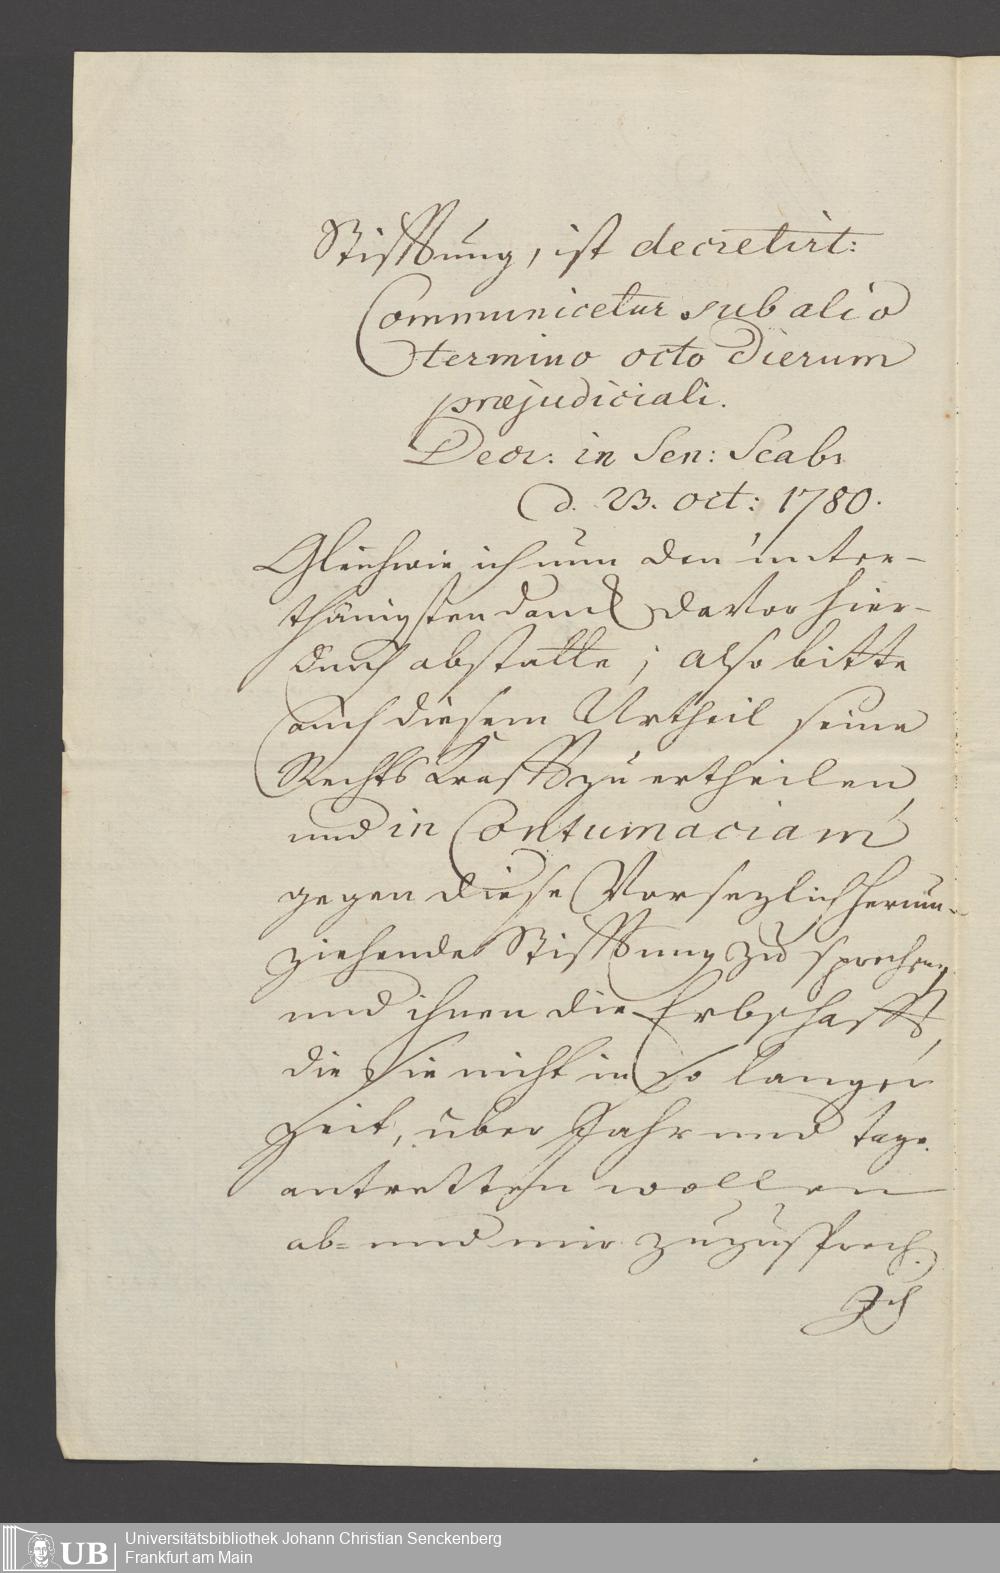 Stifftung, ist decretirt:
Communicetur sub alio
termino octo dierum
præjudiciali.
Decr: in Sen: Scab:
d. 23. oct: 1780.
Gleichwie ich nun den unter-
thänigsten danck davor hier-
durch abstatte; also bitte
auch diesem Urtheil seine
Rechts Krafft zu ertheilen,
und in Contumaciam
gegen diese Vorsezlich herum-
ziehende Stifftung zu sprechen,
und ihnen die Erbschafft,
die sie nicht in so langer
Zeit, über Jahr und tage
antretten wollen
ab- und mir zuzusprech.
Ich
UB
Universitätsbibliothek Johann Christian Senckenberg
Frankfurt am Main